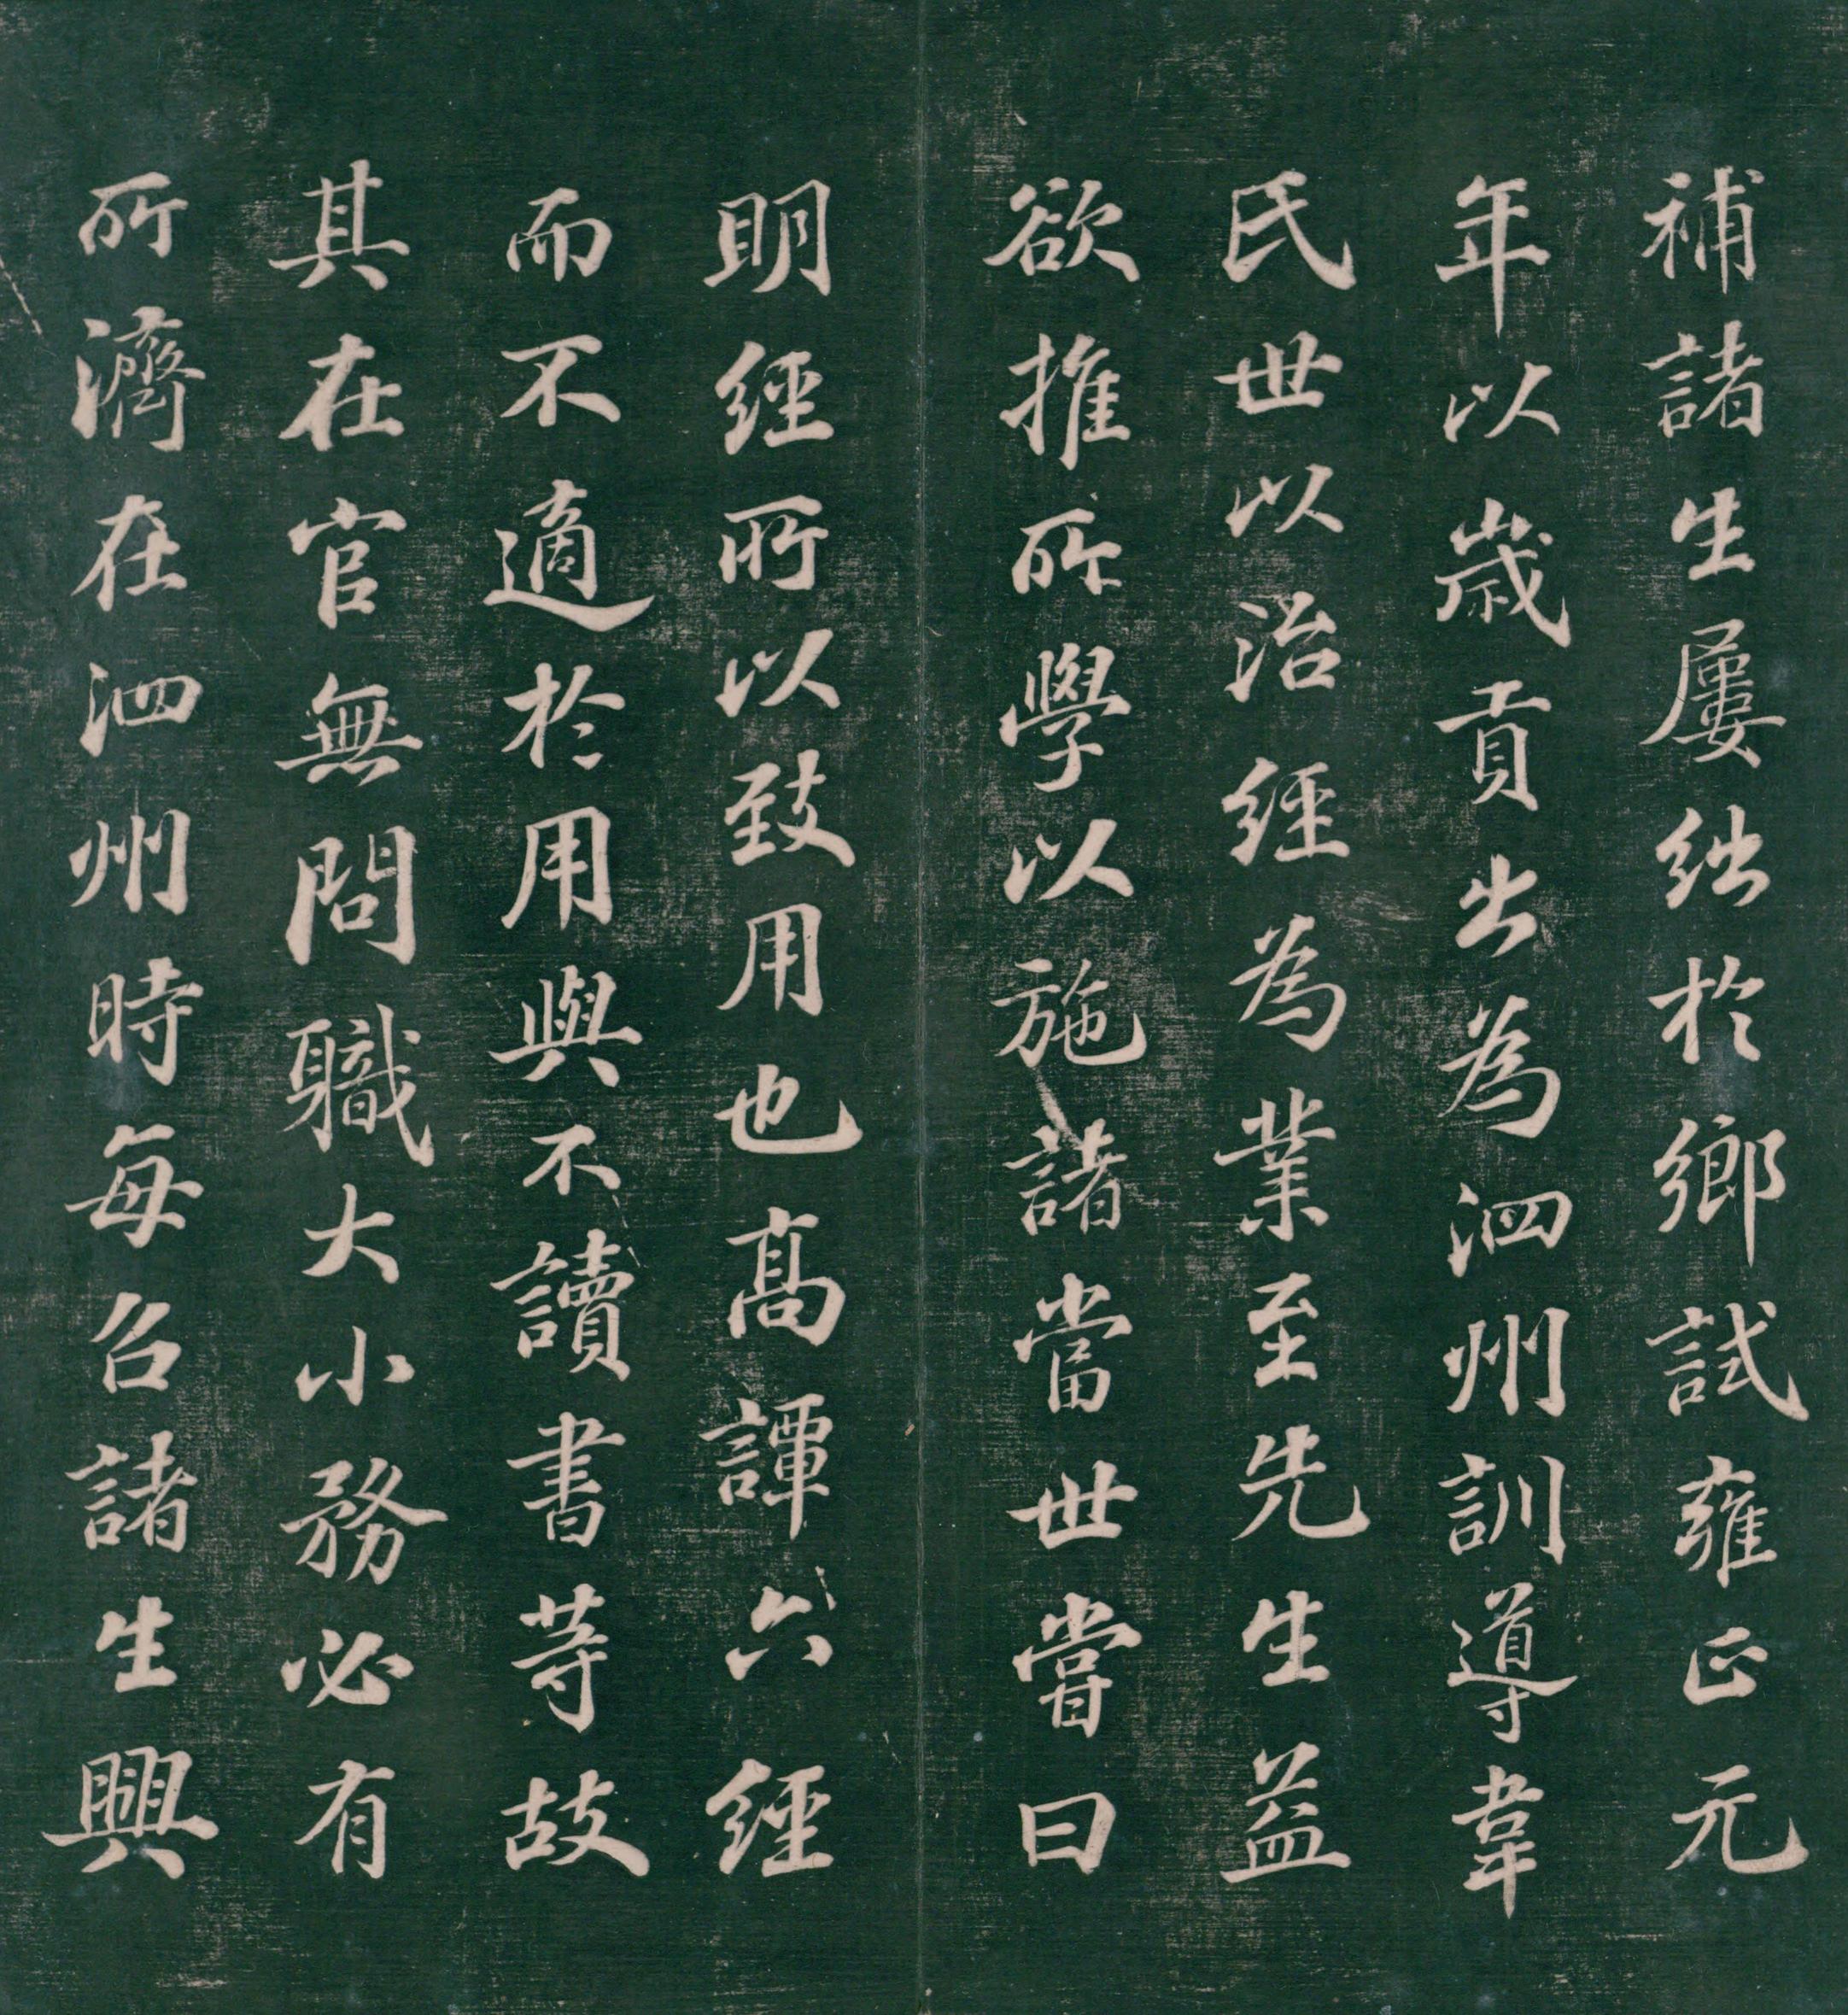 補諸生屢絀於鄉試雍正元
年以歲貢出為泗州訓導韋
氏世以治經為業至先生益
欲推所學以施諸當世嘗曰
明經所以致用也高譚六經
而不適於用與不讀書等故
其在官無問職大小務必有
所濟在泗州時每召諸生興